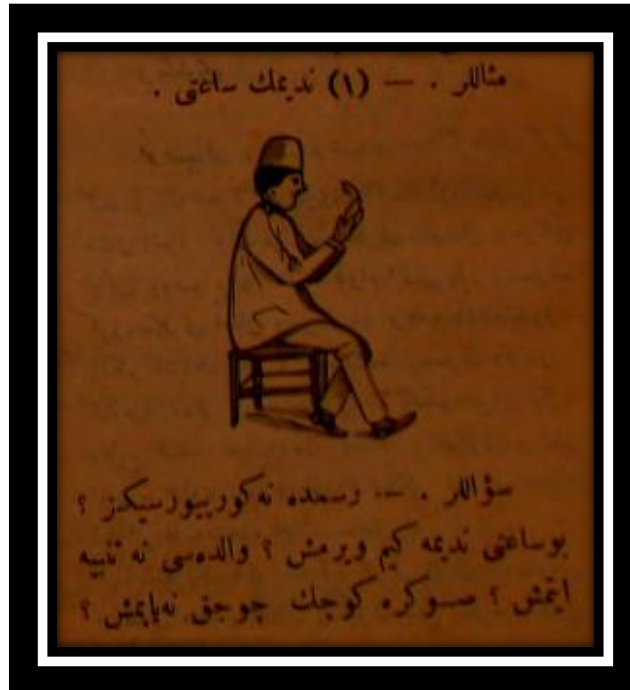 مثاللر . — (١) نديمك ساعتى .
سؤاللر . — رسمده نه كورييورسيكز ؟
بوساعتى نديمه كيم ويرمش ؟ والده‌سى نه تنبيه
ايتمش ؟ صوكره كوچك چوجق نه‌ياپمش ؟